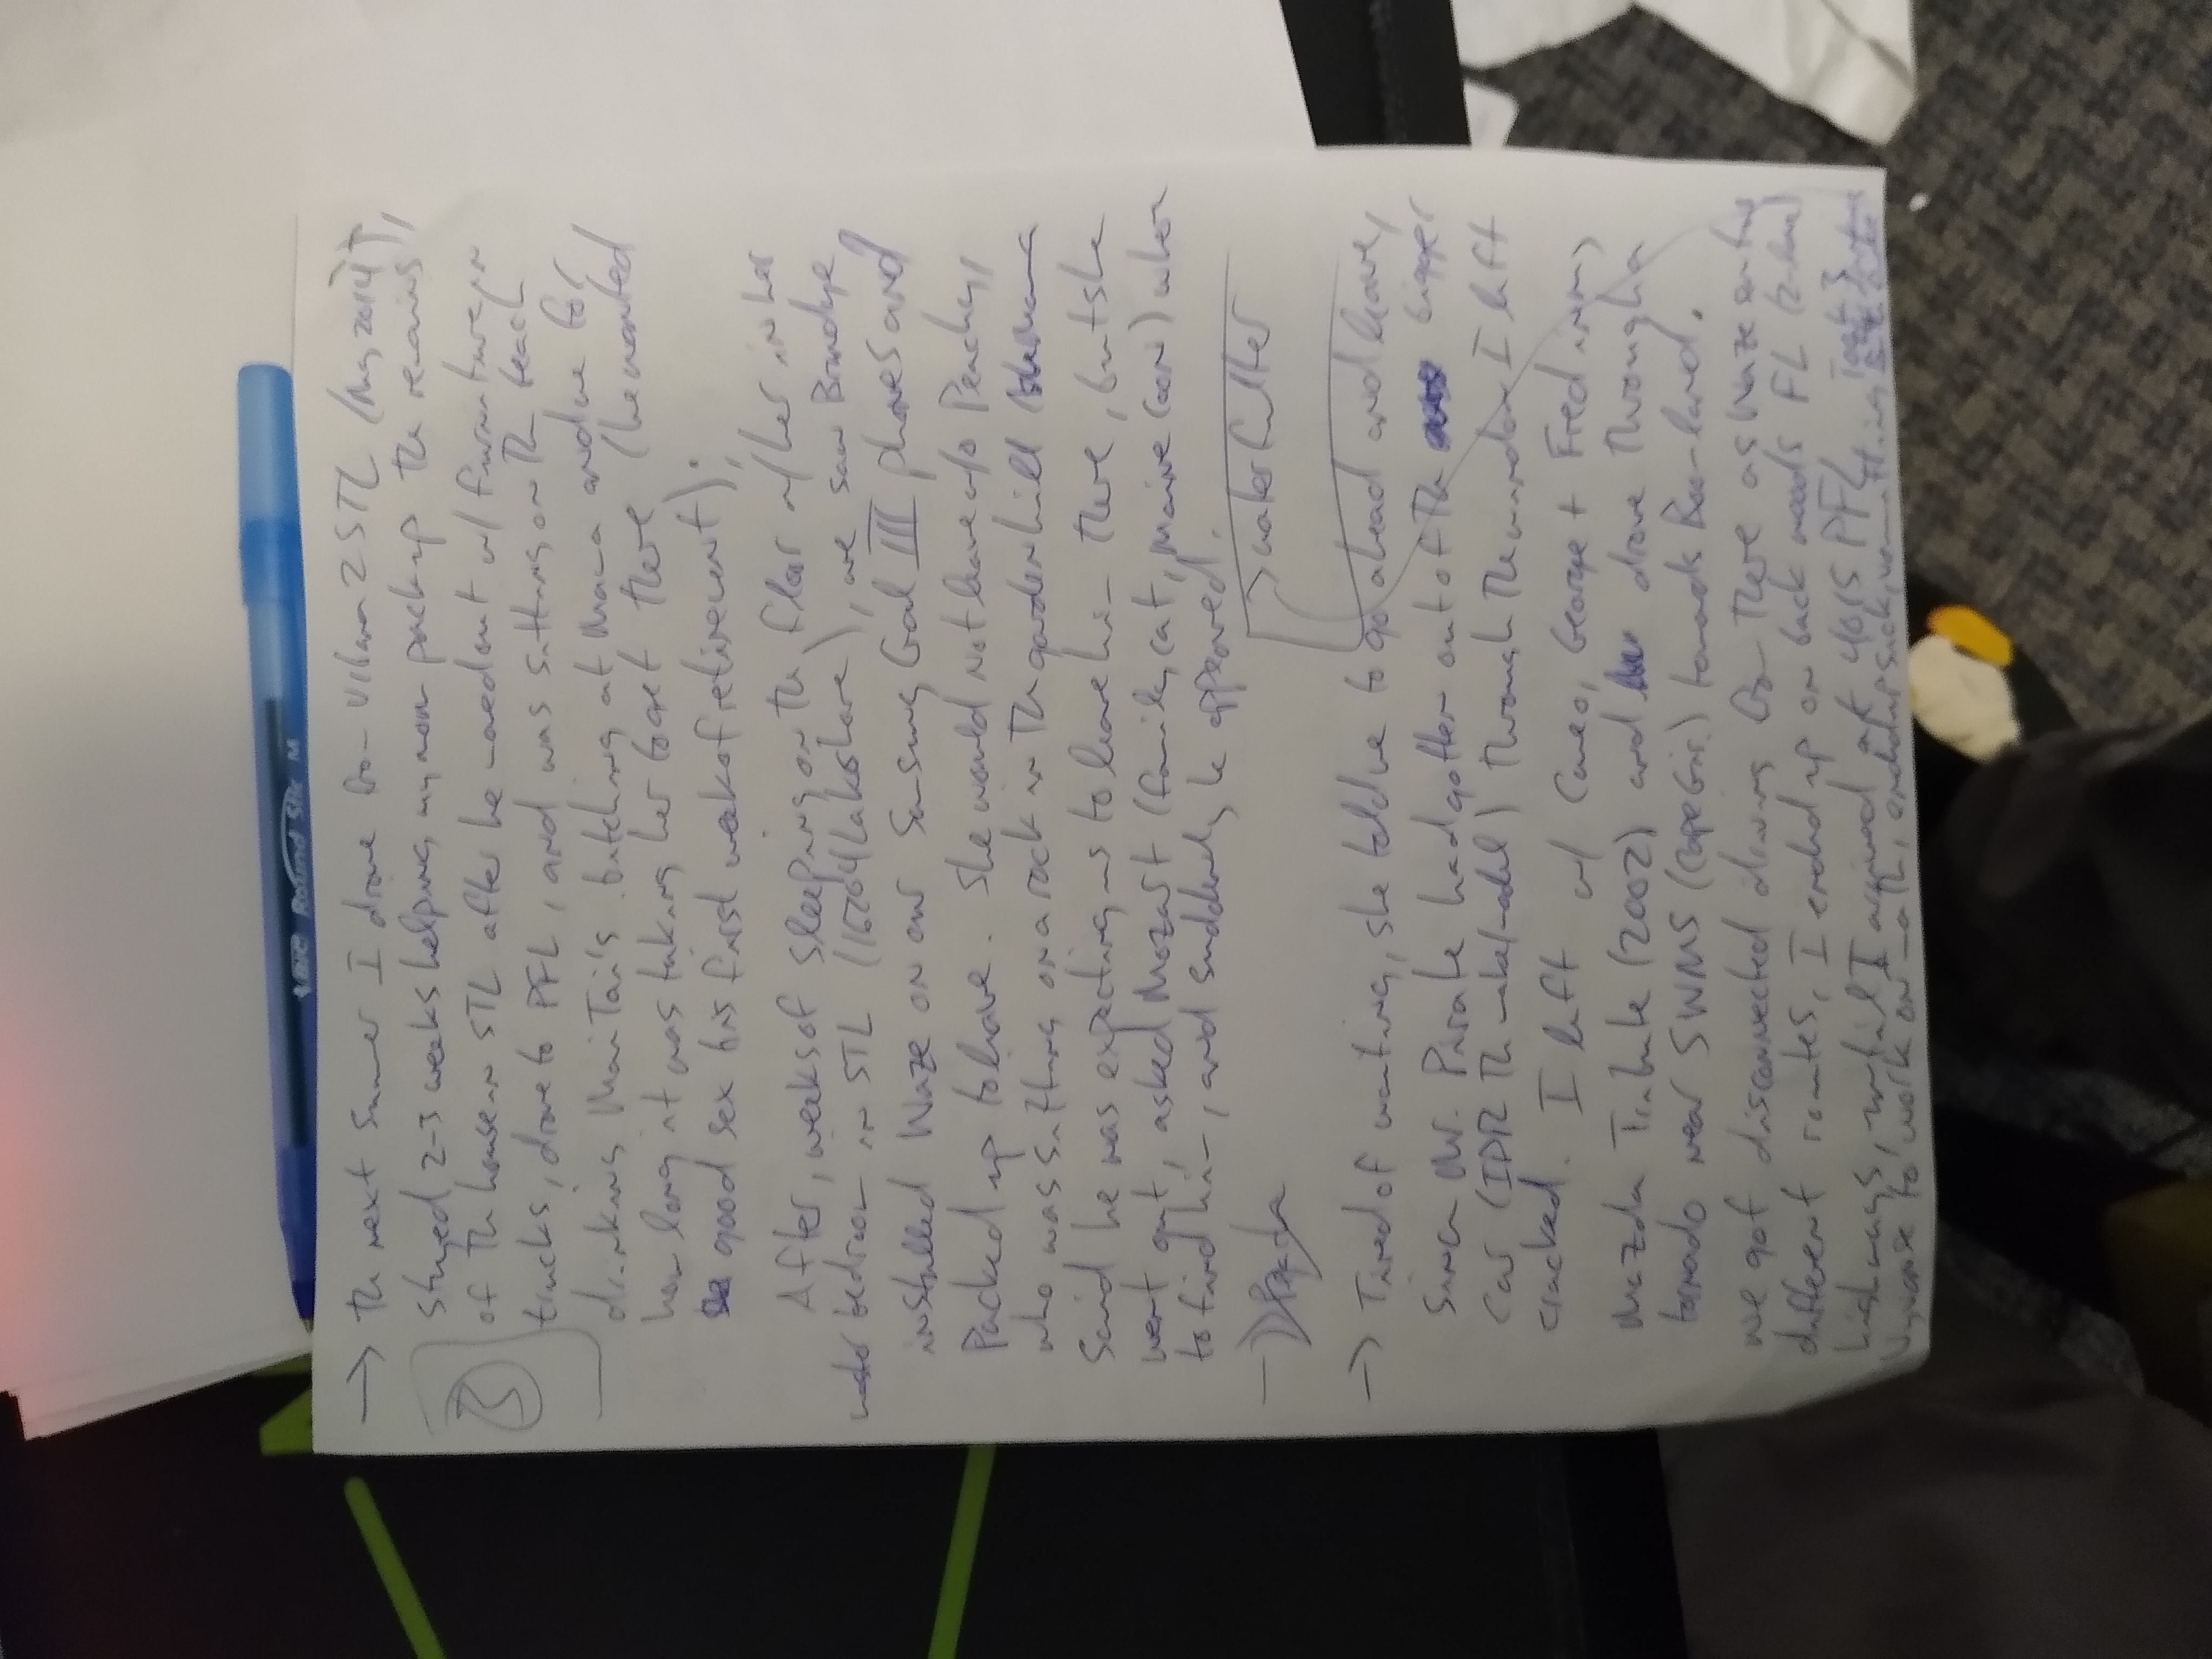 BIC Round Stic M
→ The next summer I drove from Vilano 2 STL (May 2014),
stayed 2-3 weeks helping my mom packup the remains
of the house in STL after he moved out w/ furniture in
(5)
trucks, drove to PFL, and was sitting on the beach
drinking Mai Tai's bitching at Mama and me for
how long it was taking her to get there (he wanted
good sex his first week of retirement).
After, weeks of sleeping on the floor w/ her in her
bedroom in STL (16264 Lakeshore), we saw Brandye
installed Waze on our Samsung Goal III phones and
Packed up to leave. She would not leave w/o Peachy,
who was sitting on a rock in the garden hill
Said he was expecting us to leave him there, but she
went out, asked Mozart (family cat, maine coon) where
to find him, and suddenly he appeared.
→ water filter
→ Tired of waiting, she told me to go ahead and leave,
Since Mr. Pirate had gotten out of the bigger
Car (IDR The make/model) through the window I left
cracked. I left w/ Cameo, George + Fred in my
Mazda Tribute (2002) and drove through a
tornado near SWMS (Cape Gir.) towards Boo-loved.
we got disconnected driving down there as Waze sent us
different routes, I ended up on back woods FL (2-lane)
highways, until I arrived at 4015 PFL,
Nyquse to work on it, ended up sick, vomiting